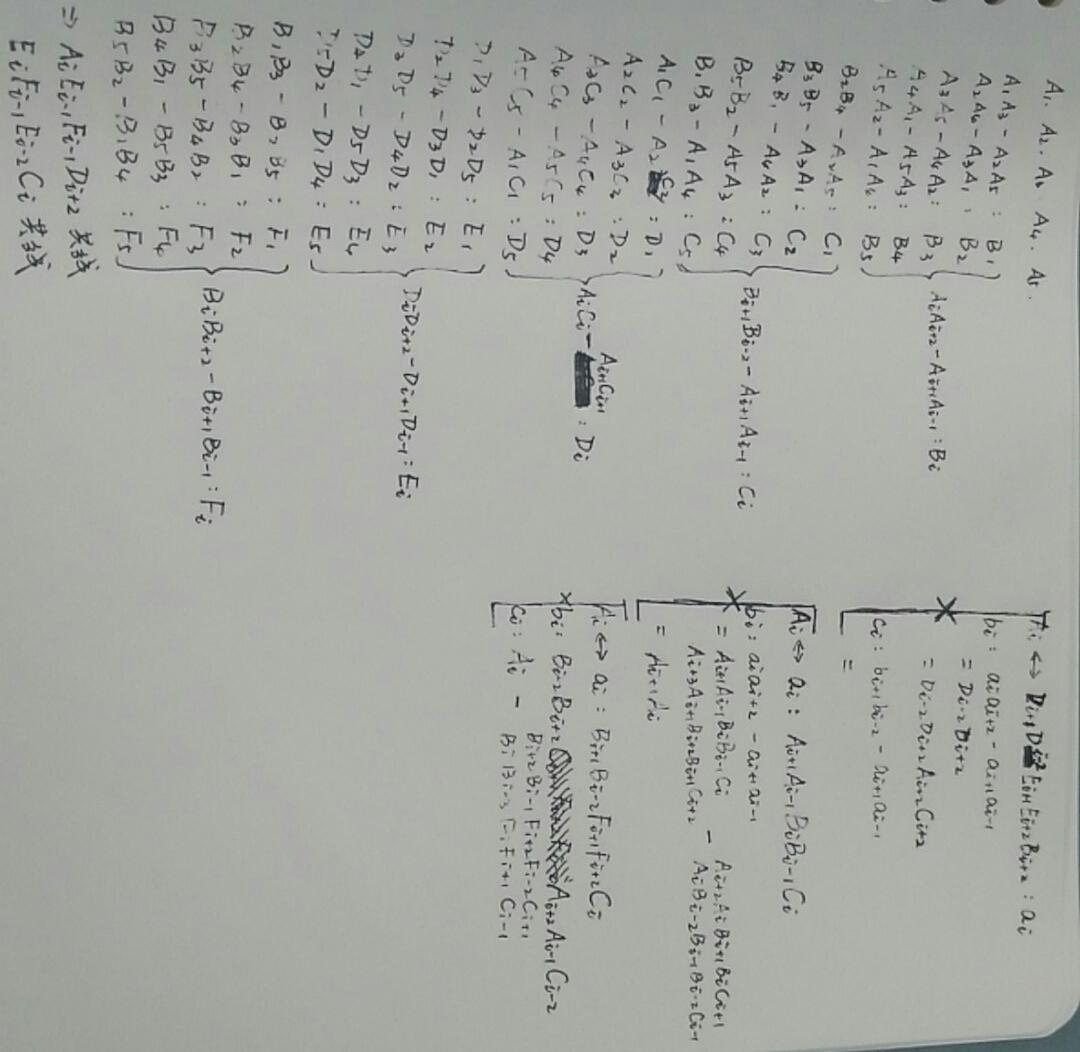 A₁. A₂. A₃. A₄. A₅.
A₁A₃ - A₂A₅ : B₁
A₂A₄ - A₃A₁ : B₂
A₃A₅ - A₄A₂ : B₃
A₄A₁ - A₅A₃ : B₄
A₅A₂ - A₁A₄ : B₅
AᵢAᵢ₊₂ - Aᵢ₊₁Aᵢ₋₁ : Bᵢ
B₂B₄ - A₂A₅ : C₁
B₃B₅ - A₃A₁ : C₂
B₄B₁ - A₄A₂ : C₃
B₅B₂ - A₅A₃ : C₄
B₁B₃ - A₁A₄ : C₅
Bᵢ₊₁Bᵢ₋₂ - Aᵢ₊₁Aᵢ₋₁ : Cᵢ
A₁C₁ - A₂C₂ : D₁
A₂C₂ - A₃C₃ : D₂
A₃C₃ - A₄C₄ : D₃
A₄C₄ - A₅C₅ : D₄
A₅C₅ - A₁C₁ : D₅
AᵢCᵢ - Aᵢ₊₁Cᵢ₊₁ : Dᵢ
D₁D₃ - D₂D₅ : E₁
D₂D₄ - D₃D₁ : E₂
D₃D₅ - D₄D₂ : E₃
D₄D₁ - D₅D₃ : E₄
D₅D₂ - D₁D₄ : E₅
DᵢDᵢ₊₂ - Dᵢ₊₁Dᵢ₋₁ : Eᵢ
B₁B₃ - B₂B₅ : F₁
B₂B₄ - B₃B₁ : F₂
B₃B₅ - B₄B₂ : F₃
B₄B₁ - B₅B₃ : F₄
B₅B₂ - B₁B₄ : F₅
BᵢBᵢ₊₂ - Bᵢ₊₁Bᵢ₋₁ : Fᵢ
⇒ AᵢEᵢ₋₁Fᵢ₋₁Dᵢ₊₂ 共线
EᵢFᵢ₋₁Eᵢ₋₂Cᵢ 共线
Eᵢ₊₁Eᵢ₊₂Bᵢ₊₂ : aᵢ
bᵢ : aᵢaᵢ₊₂ - aᵢ₊₁aᵢ₋₁
= Dᵢ₋₂Dᵢ₊₂
= Dᵢ₋₂Dᵢ₊₂Aᵢ₊₂Cᵢ₊₂
cᵢ : bᵢ₊₁bᵢ₋₂ - aᵢ₊₁aᵢ₋₁
=
Aᵢ ↔ aᵢ : Aᵢ₊₁Aᵢ₋₁BᵢBᵢ₋₁Cᵢ
bᵢ : aᵢaᵢ₊₂ - aᵢ₊₁aᵢ₋₁
= Aᵢ₊₁Aᵢ₋₁BᵢBᵢ₋₁Cᵢ - Aᵢ₊₂AᵢBᵢ₊₁BᵢCᵢ₊₁
Aᵢ₊₃Aᵢ₊₁Bᵢ₊₂Bᵢ₊₁Cᵢ₊₂ AᵢBᵢ₋₂Bᵢ₋₁Bᵢ₋₂Cᵢ₋₁
= Aᵢ₊₁Aᵢ
Aᵢ ↔ aᵢ : Bᵢ₊₁Bᵢ₋₂Fᵢ₊₁Fᵢ₊₂Cᵢ
bᵢ : Bᵢ₋₂Bᵢ₊₂ Aᵢ₊₂Aᵢ₋₁Cᵢ₋₂
cᵢ : Aᵢ - Bᵢ₊₂Bᵢ₋₁Fᵢ₊₂Fᵢ₋₂Cᵢ₊₁